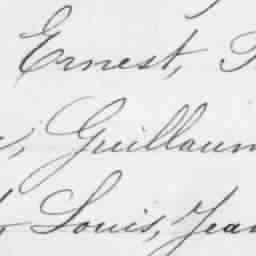 Ernest,
Guillaum
Louis, Jean